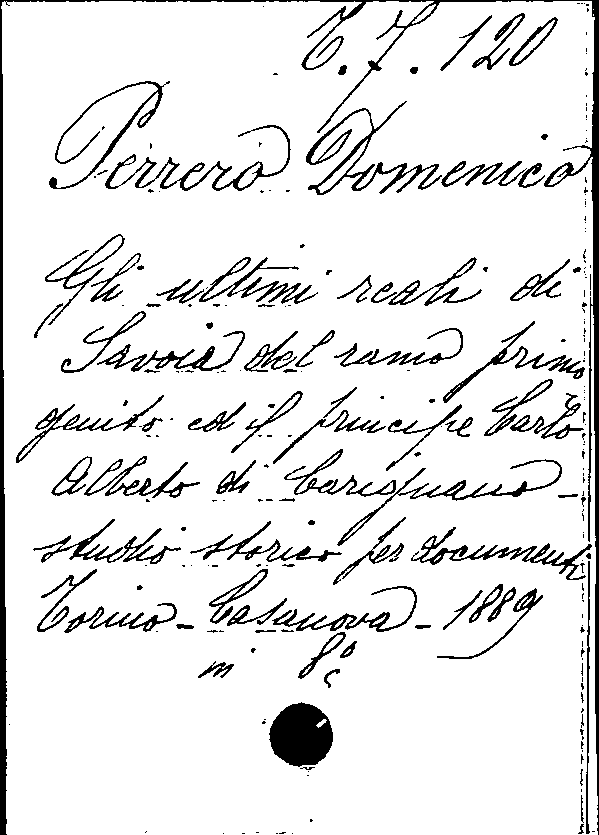 C. 7. 120
Perrero Domenico
Gli ultimi reali di
Savoia del ramo primo
genito ed il principe Carlo
Alberto di Carignano -
studio storico per documenti
Torino - Casanova - 1889
in 8º